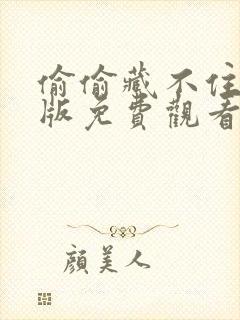 偷偷藏不住
版免費觀看
顏美人